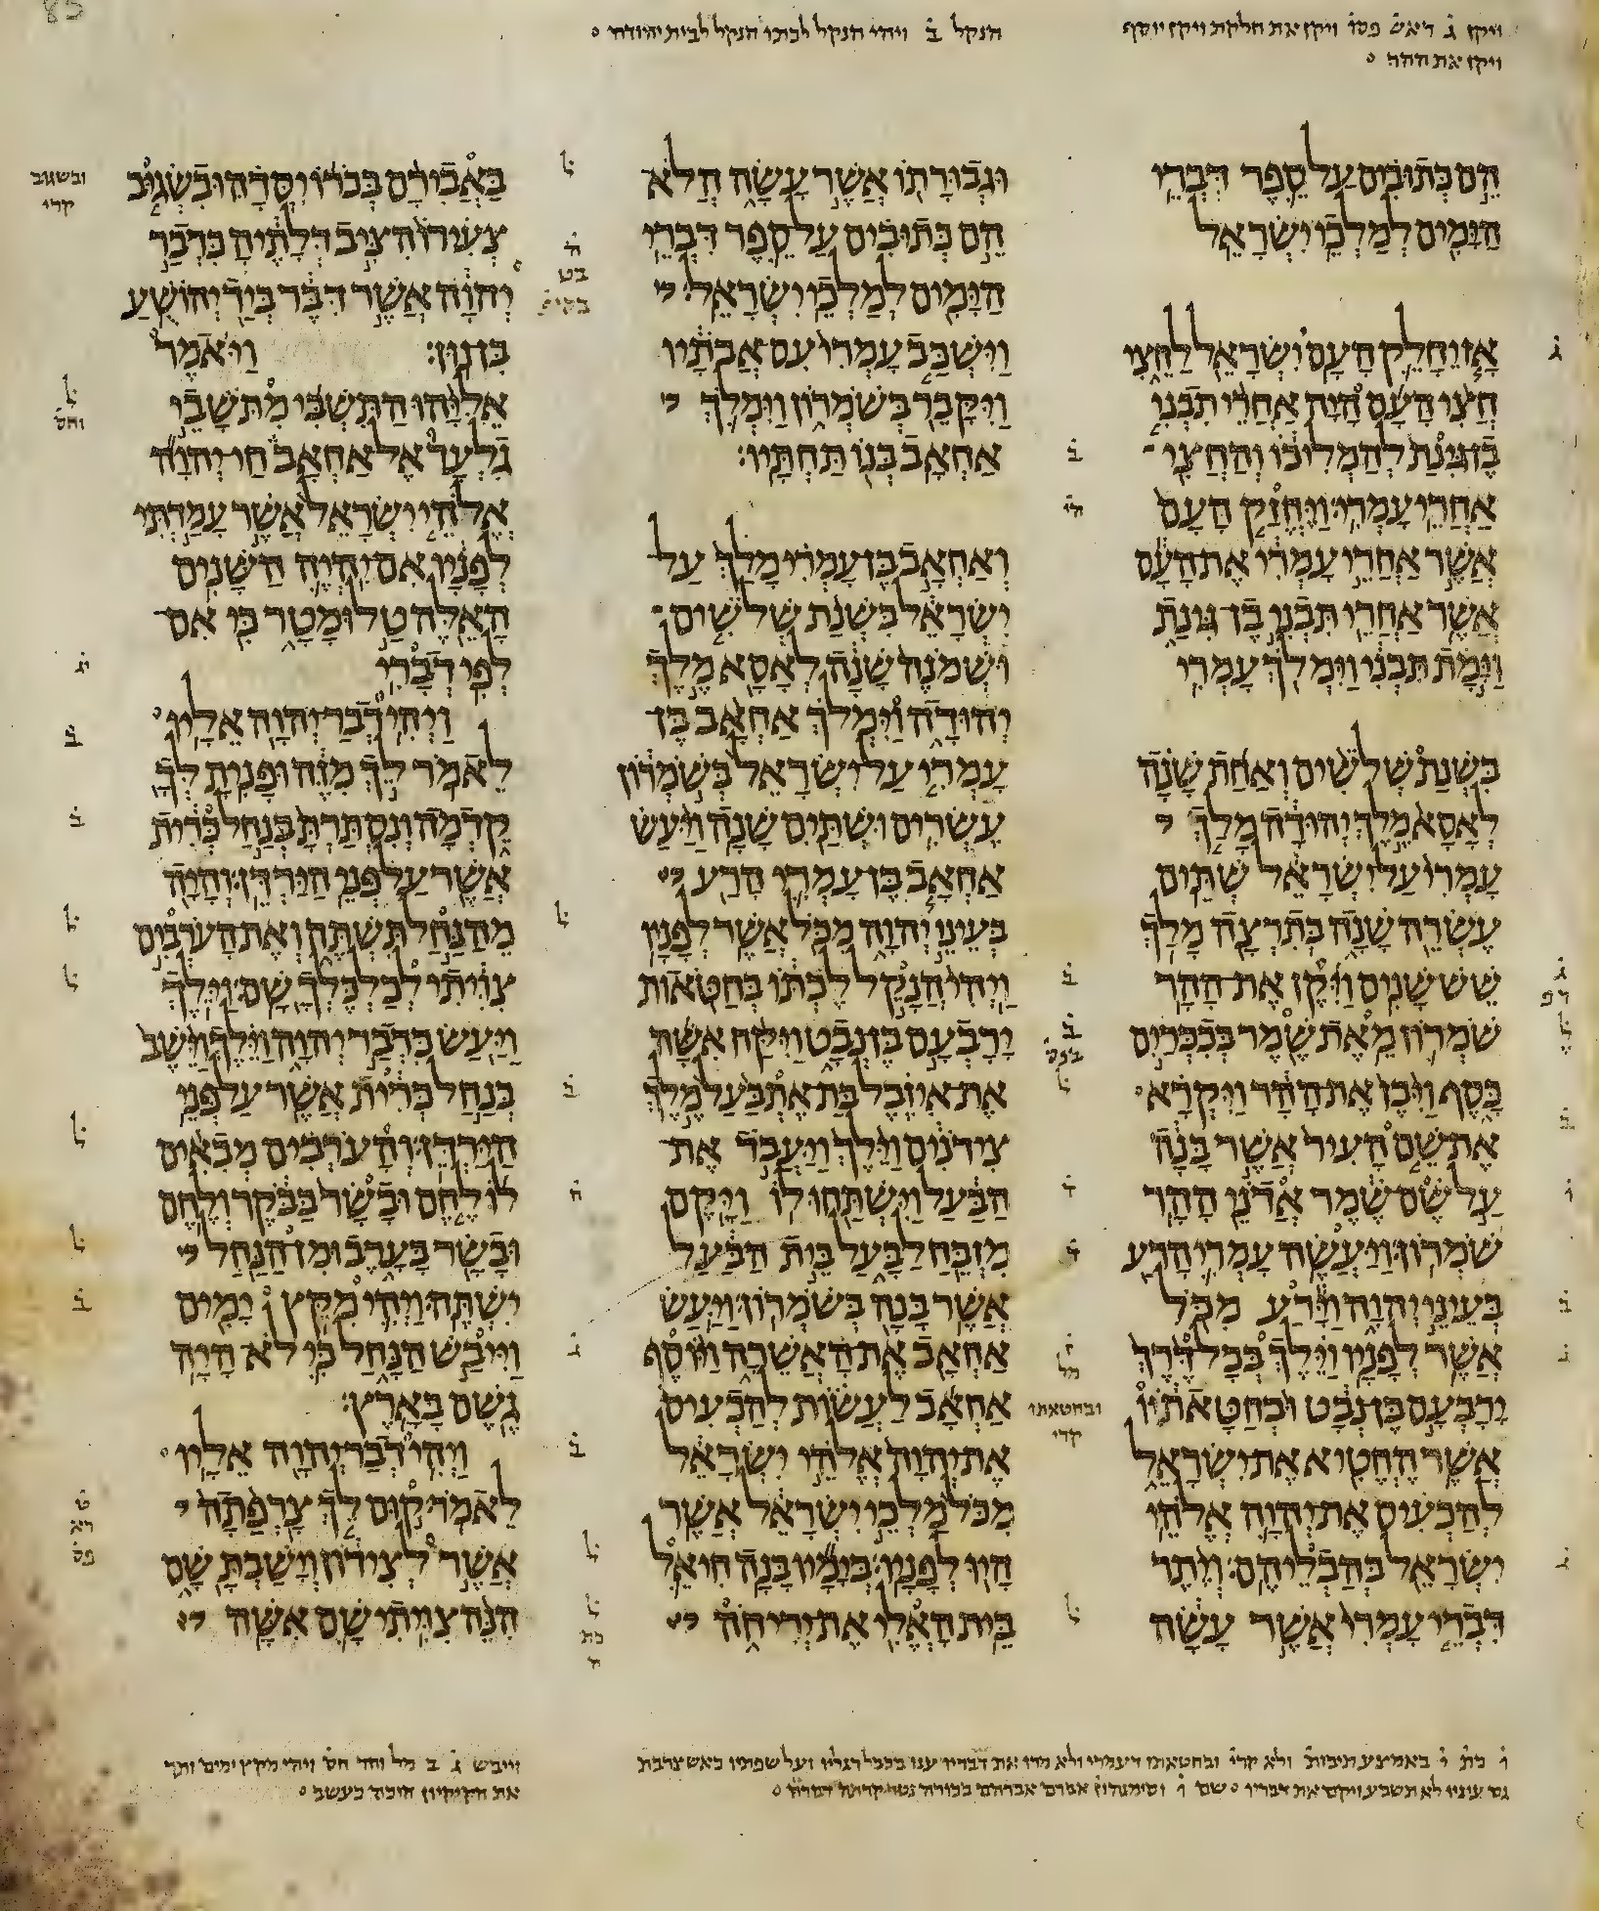 ויקן ג̇ ראש̇ פסו̇ ויקן את חלקת ויקן יוסף
ויקן את ההר
הנקל ב̇ ויהי הנקל לכתו הנקל לבית יהודה
הֵם כְּתוּבִים עַל סֵפֶר דִּבְרֵי
הַיָּמִים לְמַלְכֵי יִשְׂרָאֵל
אָז יֵחָלֵק הָעָם יִשְׂרָאֵל לַחֵצִי
חֲצִי הָעָם הָיָה אַחֲרֵי תִבְנִי
בֶן גִּינַת לְהַמְלִיכוֹ וְהַחֲצִי
אַחֲרֵי עָמְרִי׃ וַיֶּחֱזַק הָעָם
אֲשֶׁר אַחֲרֵי עָמְרִי אֶת הָעָם
אֲשֶׁר אַחֲרֵי תִּבְנִי בֶן גִּינַת
וַיָּמָת תִּבְנִי וַיִּמְלֹךְ עָמְרִי
בִּשְׁנַת שְׁלֹשִׁים וְאַחַת שָׁנָה
לְאָסָא מֶלֶךְ יְהוּדָה מָלַךְ
עָמְרִי עַל יִשְׂרָאֵל שְׁתֵּים
עֶשְׂרֵה שָׁנָה בְּתִרְצָה מָלַךְ
שֵׁשׁ שָׁנִים וַיִּקֶן אֶת־הָהָר
שֹׁמְרוֹן מֵאֵת שֶׁמֶר בְּכִכְּרַיִם
כָּסֶף וַיִּבֶן אֶת הָהָר וַיִּקְרָא
אֶת שֵׁם הָעִיר אֲשֶׁר בָּנָה
עַל שֶׁם שֶׁמֶר אֲדֹנֵי הָהָר
שֹׁמְרוֹן׃ וַיַּעֲשֶׂה עָמְרִי הָרַע
בְּעֵינֵי יְהוָה וַיָּרַע מִכֹּל
אֲשֶׁר לְפָנָיו׃ וַיֵּלֶךְ בְּכָל דֶּרֶךְ
יָרָבְעָם בֶּן נְבָט וּבְחַטָּאתָיו
אֲשֶׁר הֶחֱטִיא אֶת יִשְׂרָאֵל
לְהַכְעִיס אֶת יְהוָה אֱלֹהֵי
יִשְׂרָאֵל בְּהַבְלֵיהֶם׃ וְיֶתֶר
דִּבְרֵי עָמְרִי אֲשֶׁר עָשָׂה
ובחטאתו
קרי
וּגְבוּרָתוֹ אֲשֶׁר עָשָׂה הֲלֹא
הֵם כְּתוּבִים עַל סֵפֶר דִּבְרֵי
הַיָּמִים לְמַלְכֵי יִשְׂרָאֵל׃
וַיִּשְׁכַּב עָמְרִי עִם אֲבֹתָיו
וַיִּקָּבֵר בְּשֹׁמְרוֹן וַיִּמְלֹךְ
אַחְאָב בְּנוֹ תַּחְתָּיו׃
וְאַחְאָב בֶּן עָמְרִי מָלַךְ עַל
יִשְׂרָאֵל בִּשְׁנַת שְׁלֹשִׁים
וּשְׁמֹנֶה שָׁנָה לְאָסָא מֶלֶךְ
יְהוּדָה וַיִּמְלֹךְ אַחְאָב בֶּן
עָמְרִי עַל יִשְׂרָאֵל בְּשֹׁמְרוֹן
עֶשְׂרִים וּשְׁתַּיִם שָׁנָה׃ וַיַּעַשׂ
אַחְאָב בֶּן עָמְרִי הָרַע
בְּעֵינֵי יְהוָה מִכֹּל אֲשֶׁר לְפָנָיו׃
וַיְהִי הֲנָקֵל לֶכְתּוֹ בְּחַטֹּאות
יָרָבְעָם בֶּן נְבָט וַיִּקַּח אִשָּׁה
אֶת־אִיזֶבֶל בַּת אֶתְבַּעַל מֶלֶךְ
צִידֹנִים וַיֵּלֶךְ וַיַּעֲבֹד אֶת
הַבַּעַל וַיִּשְׁתַּחוּ לוֹ׃ וַיָּקֶם
מִזְבֵּחַ לַבָּעַל בֵּית הַבַּעַל
אֲשֶׁר בָּנָה בְּשֹׁמְרוֹן׃ וַיַּעַשׂ
אַחְאָב אֶת הָאֲשֵׁרָה וַיּוֹסֶף
אַחְאָב לַעֲשׂוֹת לְהַכְעִיס
אֶת יְהוָה אֱלֹהֵי יִשְׂרָאֵל
מִכֹּל מַלְכֵי יִשְׂרָאֵל אֲשֶׁר
הָיוּ לְפָנָיו׃ בְּיָמָיו בָּנָה חִיאֵל
בֵּית הָאֱלִי אֶת יְרִיחֹה
בַּאֲבִירָם בְּכֹרוֹ יִסְּדָהּ וּבִשְׂגִיב
צְעִירוֹ הִצִּיב דְּלָתֶיהָ כִּדְבַר
יְהוָה אֲשֶׁר דִּבֶּר בְּיַד יְהוֹשֻׁעַ
בִּן נוּן׃ וַיֹּאמֶר
אֵלִיָּהוּ הַתִּשְׁבִּי מִתֹּשָׁבֵי
גִלְעָד אֶל אַחְאָב חַי יְהוָה
אֱלֹהֵי יִשְׂרָאֵל אֲשֶׁר עָמַדְתִּי
לְפָנָיו אִם יִהְיֶה הַשָּׁנִים
הָאֵלֶּה טַל וּמָטָר כִּי אִם
לְפִי דְבָרִי׃
וַיְהִי דְבַר יְהוָה אֵלָיו
לֵאמֹר׃ לֵךְ מִזֶּה וּפָנִיתָ לְּךָ
קֵדְמָה וְנִסְתַּרְתָּ בְּנַחַל כְּרִית
אֲשֶׁר עַל פְּנֵי הַיַּרְדֵּן׃ וְהָיָה
מֵהַנַּחַל תִּשְׁתֶּה וְאֶת הָעֹרְבִים
צִוִּיתִי לְכַלְכֶּלְךָ שָׁם׃ וַיֵּלֶךְ
וַיַּעַשׂ כִּדְבַר יְהוָה וַיֵּלֶךְ וַיֵּשֶׁב
בְּנַחַל כְּרִית אֲשֶׁר עַל פְּנֵי
הַיַּרְדֵּן׃ וְהָעֹרְבִים מְבִאִים
לוֹ לֶחֶם וּבָשָׂר בַּבֹּקֶר וְלֶחֶם
וּבָשָׂר בָּעָרֶב וּמִן הַנַּחַל
יִשְׁתֶּה׃ וַיְהִי מִקֵּץ יָמִים
וַיִּיבַשׁ הַנָּחַל כִּי לֹא הָיָה
גֶשֶׁם בָּאָרֶץ׃
וַיְהִי דְבַר יְהוָה אֵלָיו
לֵאמֹר׃ קוּם לֵךְ צָרְפַתָה
אֲשֶׁר לְצִידוֹן וְיָשַׁבְתָּ שָׁם
הִנֵּה צִוִּיתִי שָׁם אִשָּׁה
ובשגוב
קרי
ו̇ כת̇ ו̇ באמצע תיבות̇ ולא קרי̇ ובחטאתו דעמרי ולא מדו את דבריו ענו בכבל רגליו ועל שפתיו כאש צרבת
גם עיניו לא תשבע ויקם את דבריו
וייבש ג̇ ב מל וחד חס̇ ויהי מקץ ימים ותר
את הקיקיון הוכה כעשב